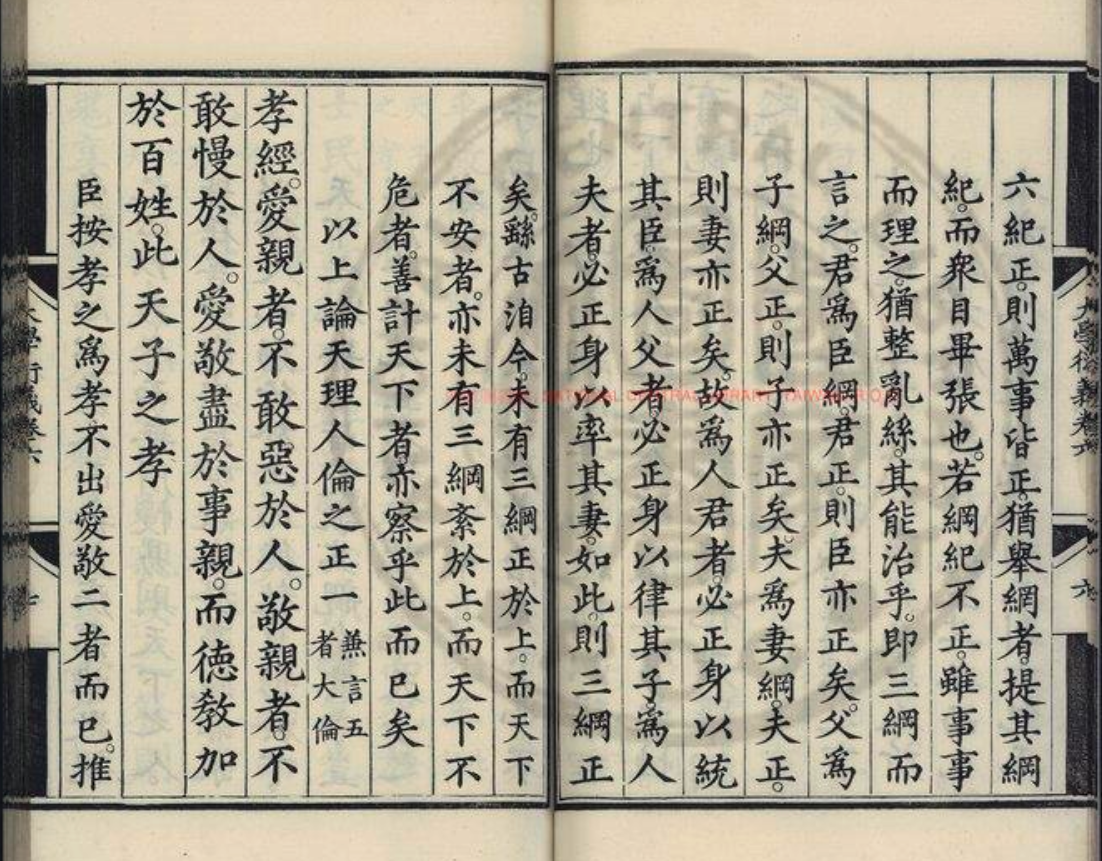 六紀正。則萬事皆正。猶舉網者。提其綱
紀。而衆目畢張也。若綱紀不正。雖事事
而理之。猶整亂絲。其能治乎。即三綱而
言之。君爲臣綱。君正。則臣亦正矣。父爲
子綱。父正。則子亦正矣。夫爲妻綱。夫正。
則妻亦正矣。故爲人君者。必正身以統
其臣。爲人父者。必正身以律其子。爲人
夫者。必正身以率其妻。如此。則三綱正
矣。繇古洎今。未有三綱正於上。而天下
不安者。亦未有三綱紊於上。而天下不
危者。善計天下者。亦察乎此而已矣
以上論天理人倫之正一 兼言五者大倫
孝經。愛親者。不敢惡於人。敬親者。不
敢慢於人。愛敬盡於事親。而德敎加
於百姓。此天子之孝
臣按孝之爲孝。不出愛敬二者而已。推
大學衍義卷六
六